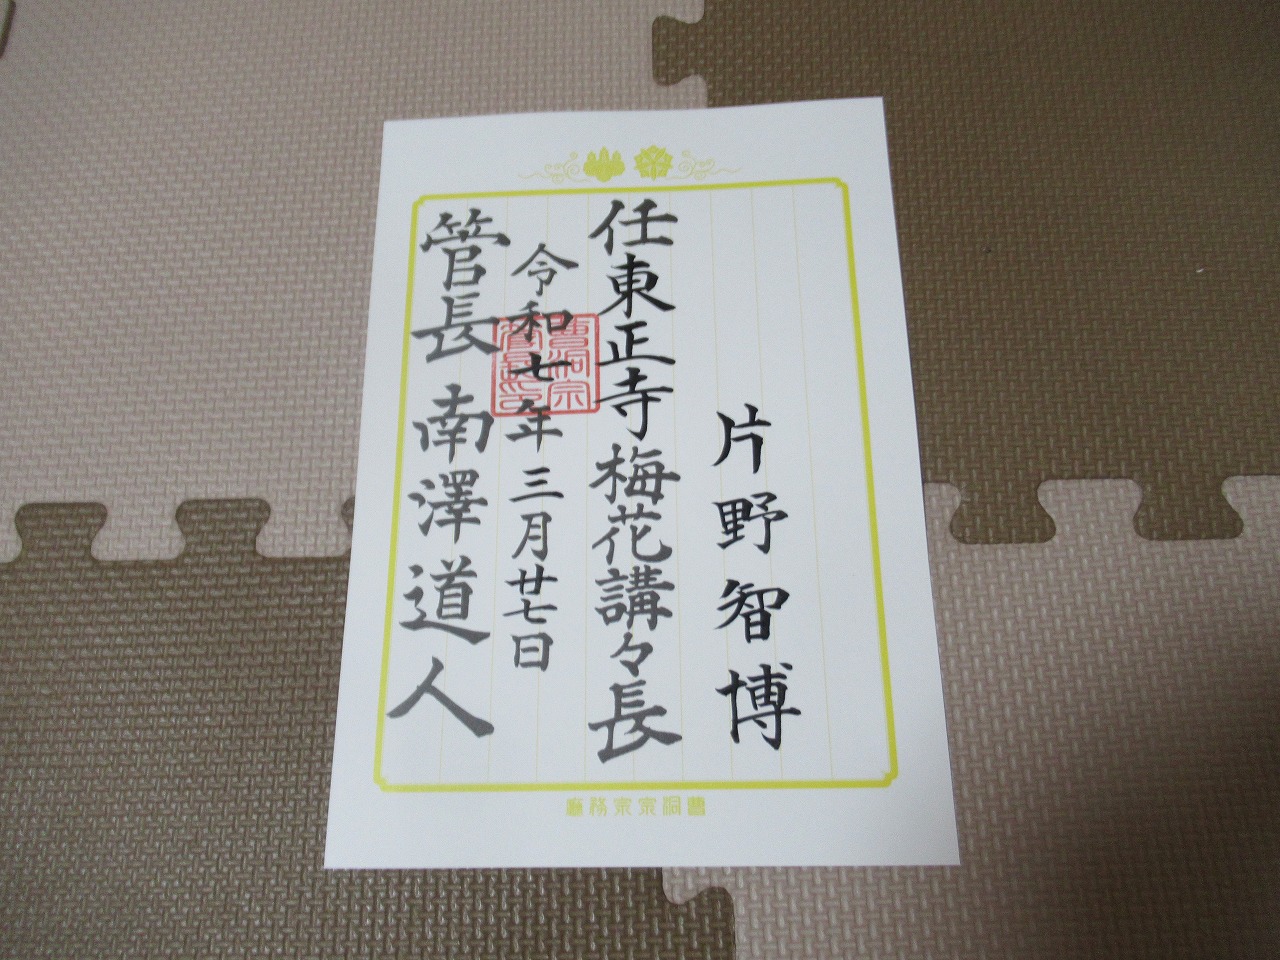 片野智博
任東正寺梅花講々長
令和七年三月廿七日
管長 南澤道人
曹洞宗管長印
曹洞宗宗務廳